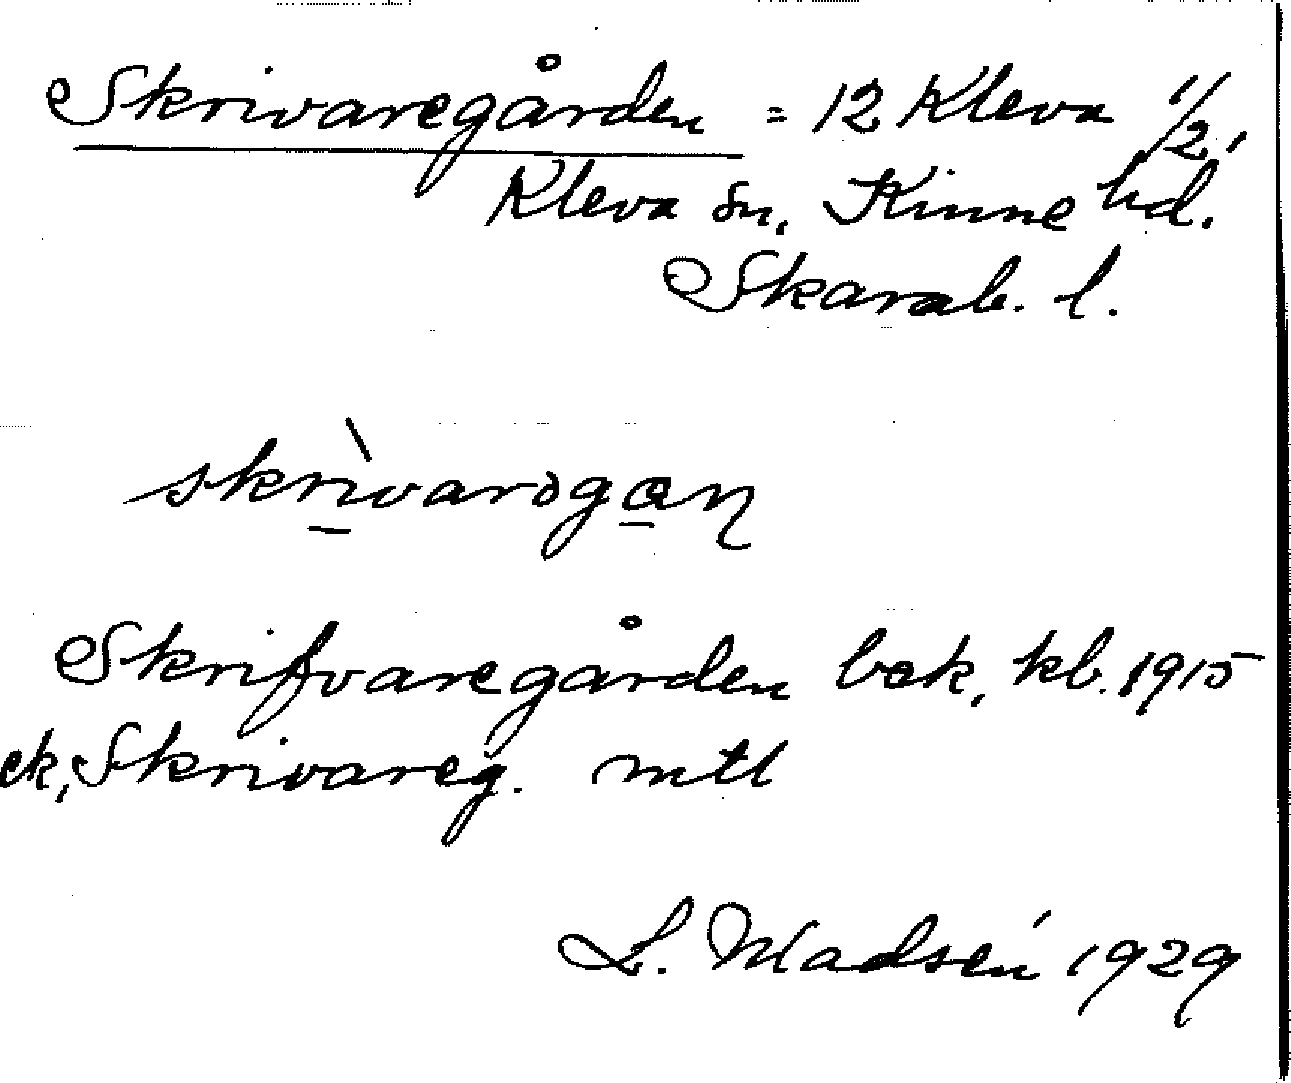 Skrivaregården = 12 Kleva 1/2,
Kleva sn, Kinne hd.
Skarab. l.
skrìvarəgaɳ
Skrifvaregården bek, kb. 1915
ek, Skrivareg. mtl
L. Madsén 1929